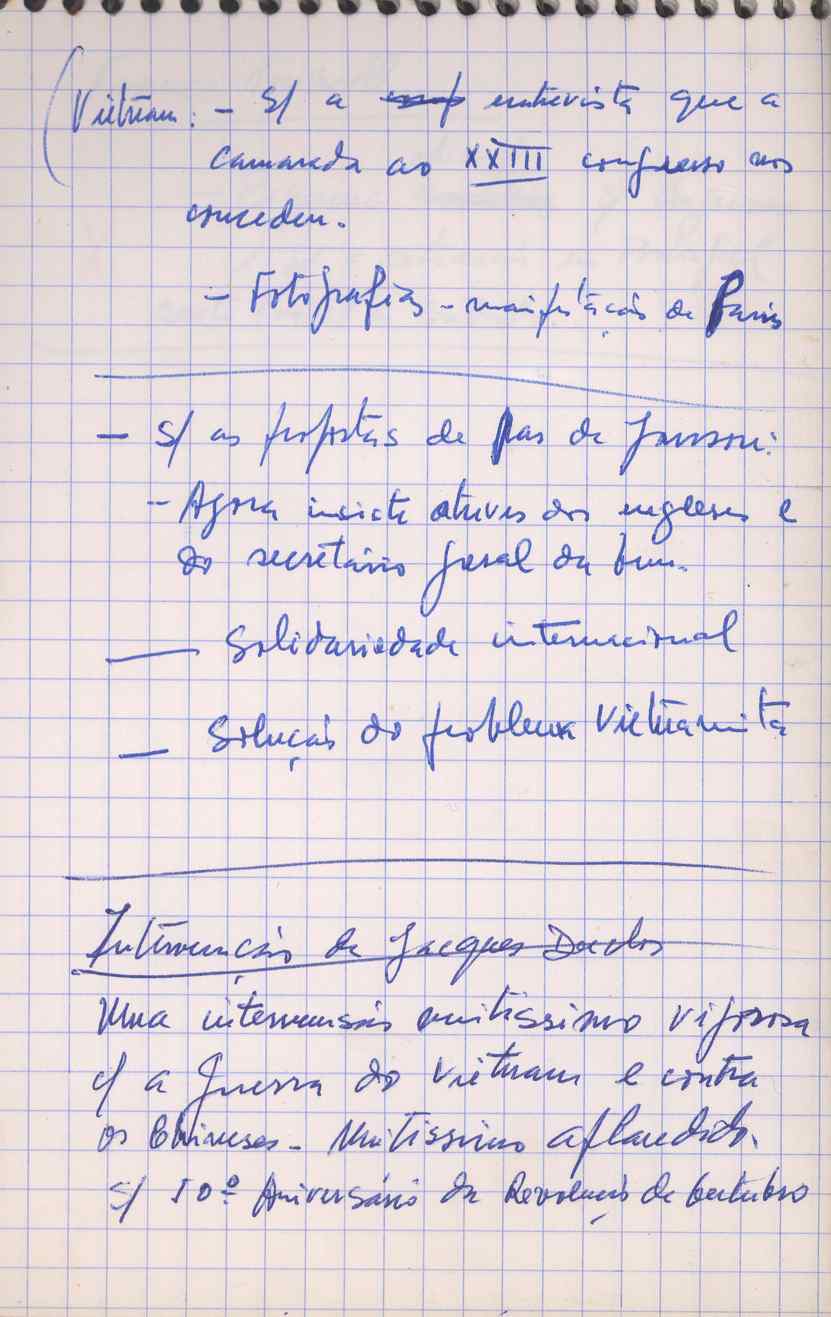 (Vietnam: - S/ a entrevista que a
camarada ao XXIII congresso nos
concedeu.
- Fotografias - manifestação de Paris
- S/ as propostas de Paz de Jonhson:
- Agora insiste através dos ingleses e
do secretário geral da
- Solidariedade internacional
- Solução do problema Vietnamita
Intervenção de Jacques Duclos
Uma intervensão muitissimo vigorosa
c/ a guerra do Vietnam e contra
os Chineses - Muitissimo aplaudido.
S/ 50º Aniversário da Revolução de Outubro